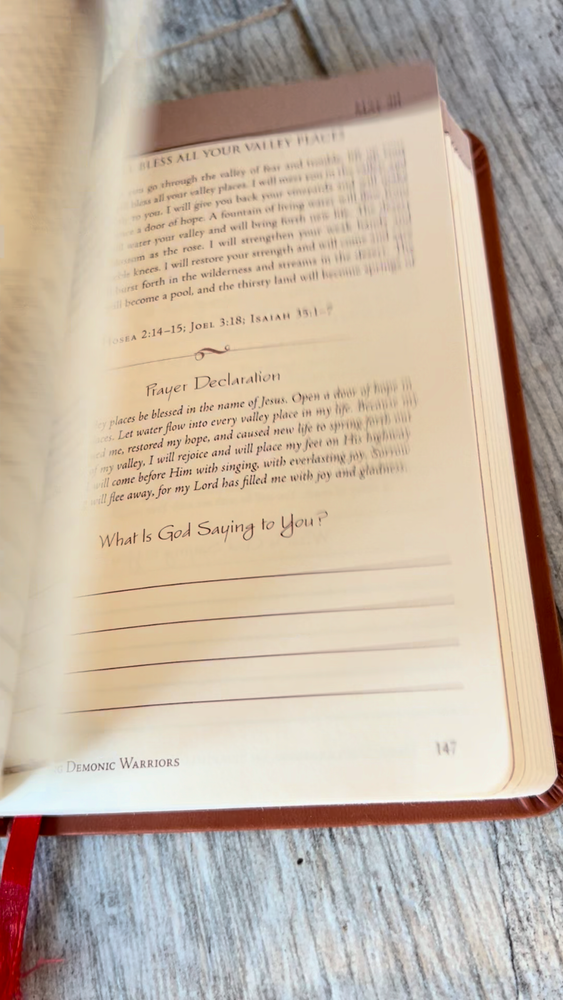 BLESS ALL YOUR VALLEY PLACES
go through the valley of fear and trouble,
bless all your valley places. I will meet you in the
to you. I will give you back your vineyards and
a door of hope. A fountain of living water will
water your valley and will bring forth new life. The
as the rose. I will strengthen your weak
knees. I will restore your strength and will come and
burst forth in the wilderness and streams in the desert. The
become a pool, and the thirsty land will become springs of
2:14–15; Joel 3:18; Isaiah 35:1–7
Prayer Declaration
places be blessed in the name of Jesus. Open a door of hope in
Let water flow into every valley place in my life. Because my
me, restored my hope, and caused new life to spring forth
my valley, I will rejoice and will place my feet on His highway
will come before Him with singing, with everlasting joy. Sorrow
will flee away, for my Lord has filled me with joy and gladness.
What Is God Saying to You?
147
Demonic Warriors